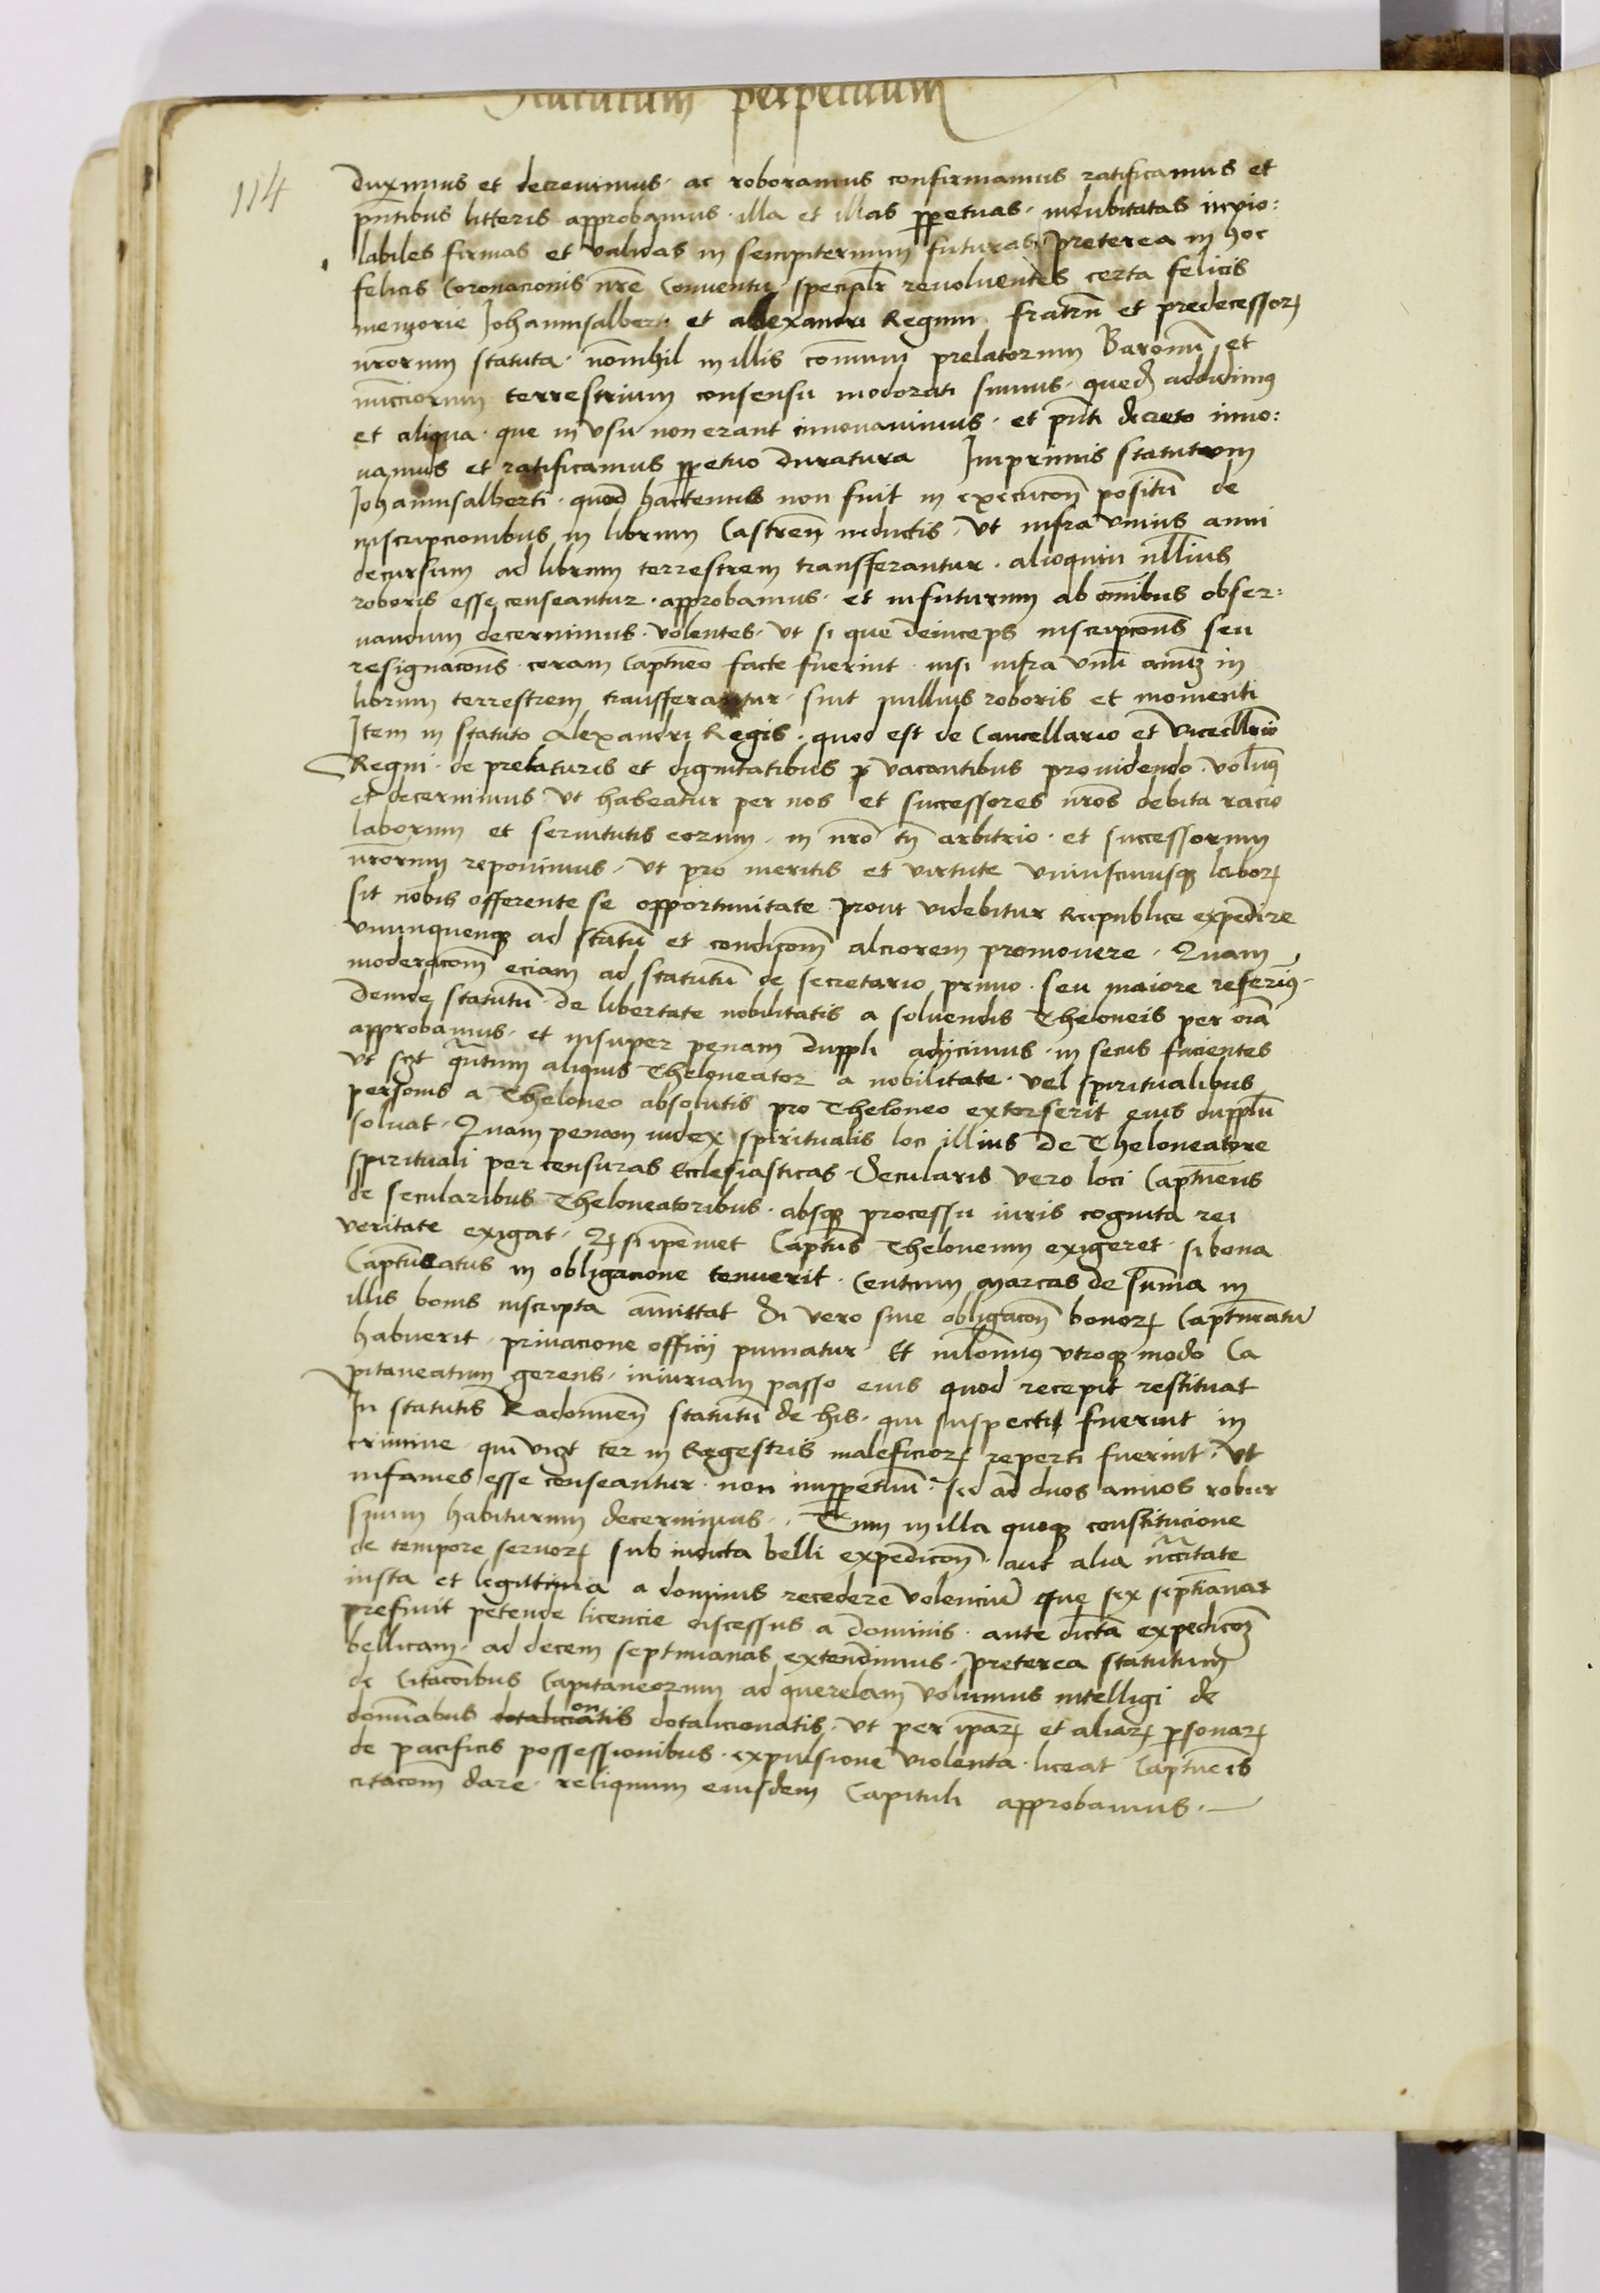 Statutum perpetuum
114
duximus et decreuimus · ac roboramus confirmamus ratificamus et
pñtibus litteris approbamus · illa et illas ppetuas · indubitatas inuio:
labiles firmas et validas in sempiternum futuras · Preterea in hoc
felicis Coronacionis nr̃e Conuentu specialr̃ reuoluentes certa felicis
memorie Johannisalberti et allexandri Regum fratrũ et predecessoꝝ
nr̃orum statuta · nõnihil in illis cõmuni prelatorum Baronũ et
nũcciorum terrestrium consensu moderati sumus · quedã addidimꝰ
et aliqua · que in vsu non erant innouauimus · et pñti decreto inno:
uamus et ratificamus ppetuo duratura Imprimis statutum
Johannisalberti · quod hactenus non fuit in execucoñ positũ de
inscripcionibus in librum Castreñ inductis · Vt infra vnius anni
decursum ad librum terrestrem transferantur · alioquin nlłius
roboris esse censeantur · approbamus · et infuturum ab om̃ibus obser:
uandum decernimus · volentes · vt si que deinceps inscripcoñs seu
resignacoñs · coram Captñeo facte fuerint · nisi infra vnũ annũ in
librum terrestrem transferantur · sint nullius roboris et momenti
Item in statuto Alexandri Regis · quod est de Cancellario et Vicecłlrio
Regni · de prelaturis et dignitatibus p vacantibus prouidendo · volumꝰ
et decernimus vt habeatur per nos et successores nr̃os debita racio
laborum et seruitutis eorum · in nr̃o tñ arbitrio · et successorum
nr̃orum reponimus · vt pro meritis et virtute vniuscuiusqꝫ laboꝝ
sit nobis offerente se opportunitate prout videbitur Reipublice expedire
vnumquenqꝫ ad statũ et condicoñ alciorem promouere · Quam
moderacoñ eciam ad statutũ de secretario primo · seu maiore referimꝰ ·
Deinde statutũ · de libertate nobilitatis a soluendis Theloneis per oiã
approbamus · et insuper penam duppli adijcimus · in secus facientes
vt sczt q̃ntum aliquis Theloneator a nobilitate · vel spiritualibus
personis a Theloneo absolutis pro Theloneo extorserit eius dupplũ
soluat · Quam penam iudex spiritualis loci illius de Theloneatore
spirituali per censuras Ecclesiasticas · Secularis vero loci Captñeus
de secularibus Theloneatoribus · absqꝫ processu iuris cognita rei
veritate exigat · Qꝫ si ipẽmet Captñs Theloneum exigeret · si bona
Captñeatus in obligacione tenuerit · Centum marcas de sum̃a in
illis bonis inscripta am̃ittat Si vero sine obligacoñ bonoꝝ Captñeatũ
habuerit · priuacione officij puniatur Et nihlominꝰ vtroqꝫ modo Ca
pitaneatum gerens · iniuriam passo eius quod recepit restituat
In statutis Radomieñ statutũ de his · qui suspecti fuerint in
crimine · qui vigt ter in Regestris maleficioꝝ reperti fuerint · Vt
infames esse censeantur · non inppetuũ · sed ad duos annos robur
suum habiturum decernimus · Tum in illa quoqꝫ constitucione
de tempore seruoꝝ sub indicta belli expedicoñ · aut alia nc̃citate
iusta et legittima a dominis recedere volenciũ que sex septĩanas
prefiuit petende licencie discessus a dominis · ante dictã expedicoñ
bellicam · ad decem septimanas extendimus · Preterea statutum
de Citacoĩbus Capitaneorum ad querelam volumus intelligi de
domĩabus dotaliciõatis dotalicionatis · vt per ipãꝝ et aliaꝝ psonaꝝ
de pacificis possessionibus · expulsione violenta · liceat Captñeis
citacoñ dare · reliquum eiusdem Capituli approbamus ·